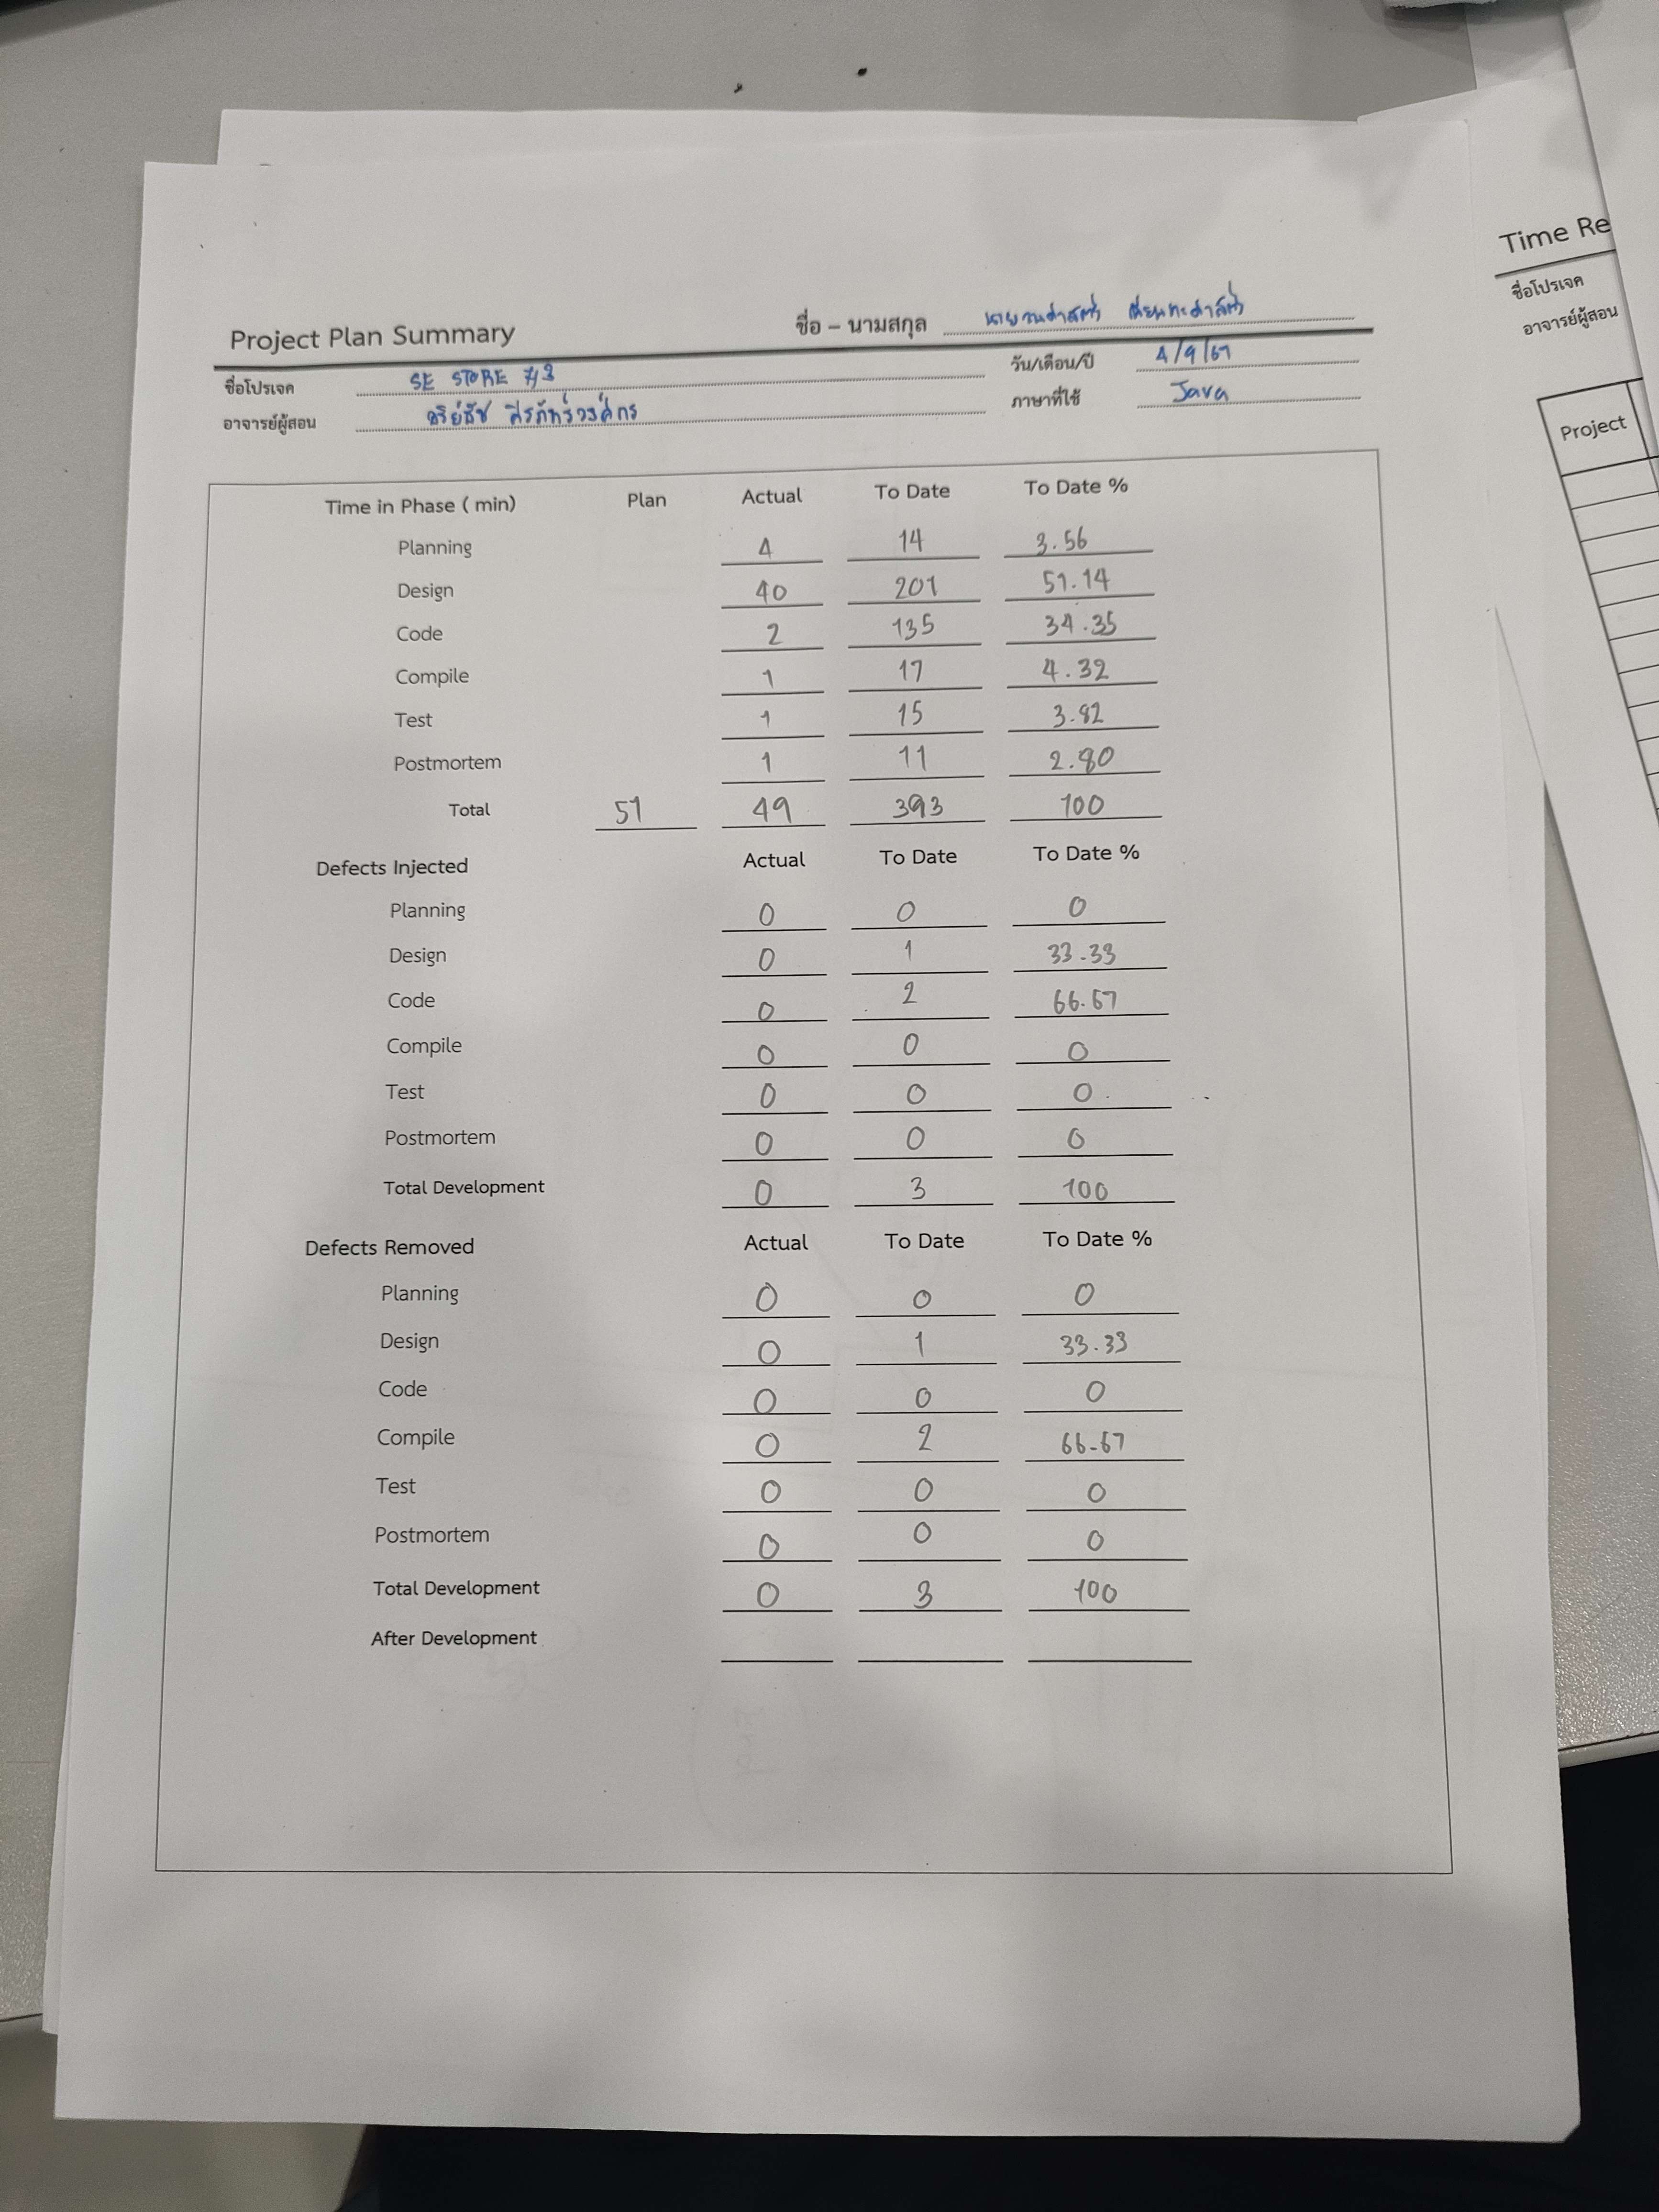 Project Plan Summary ชื่อ – นามสกุล
ชื่อโปรเจค SE STORE #3 วัน/เดือน/ปี 4/9/67
อาจารย์ผู้สอน ภาษาที่ใช้ Java
Time in Phase ( min) Plan Actual To Date To Date %
Planning 4 14 3.56
Design 40 201 51.14
Code 2 135 34.35
Compile 1 17 4.32
Test 1 15 3.82
Postmortem 1 11 2.80
Total 51 49 393 100
Defects Injected Actual To Date To Date %
Planning 0 0 0
Design 0 1 33.33
Code 0 2 66.67
Compile 0 0 0
Test 0 0 0
Postmortem 0 0 0
Total Development 0 3 100
Defects Removed Actual To Date To Date %
Planning 0 0 0
Design 0 1 33.33
Code 0 0 0
Compile 0 2 66.67
Test 0 0 0
Postmortem 0 0 0
Total Development 0 3 100
After Development
Time Re
ชื่อโปรเจค
อาจารย์ผู้สอน
Project